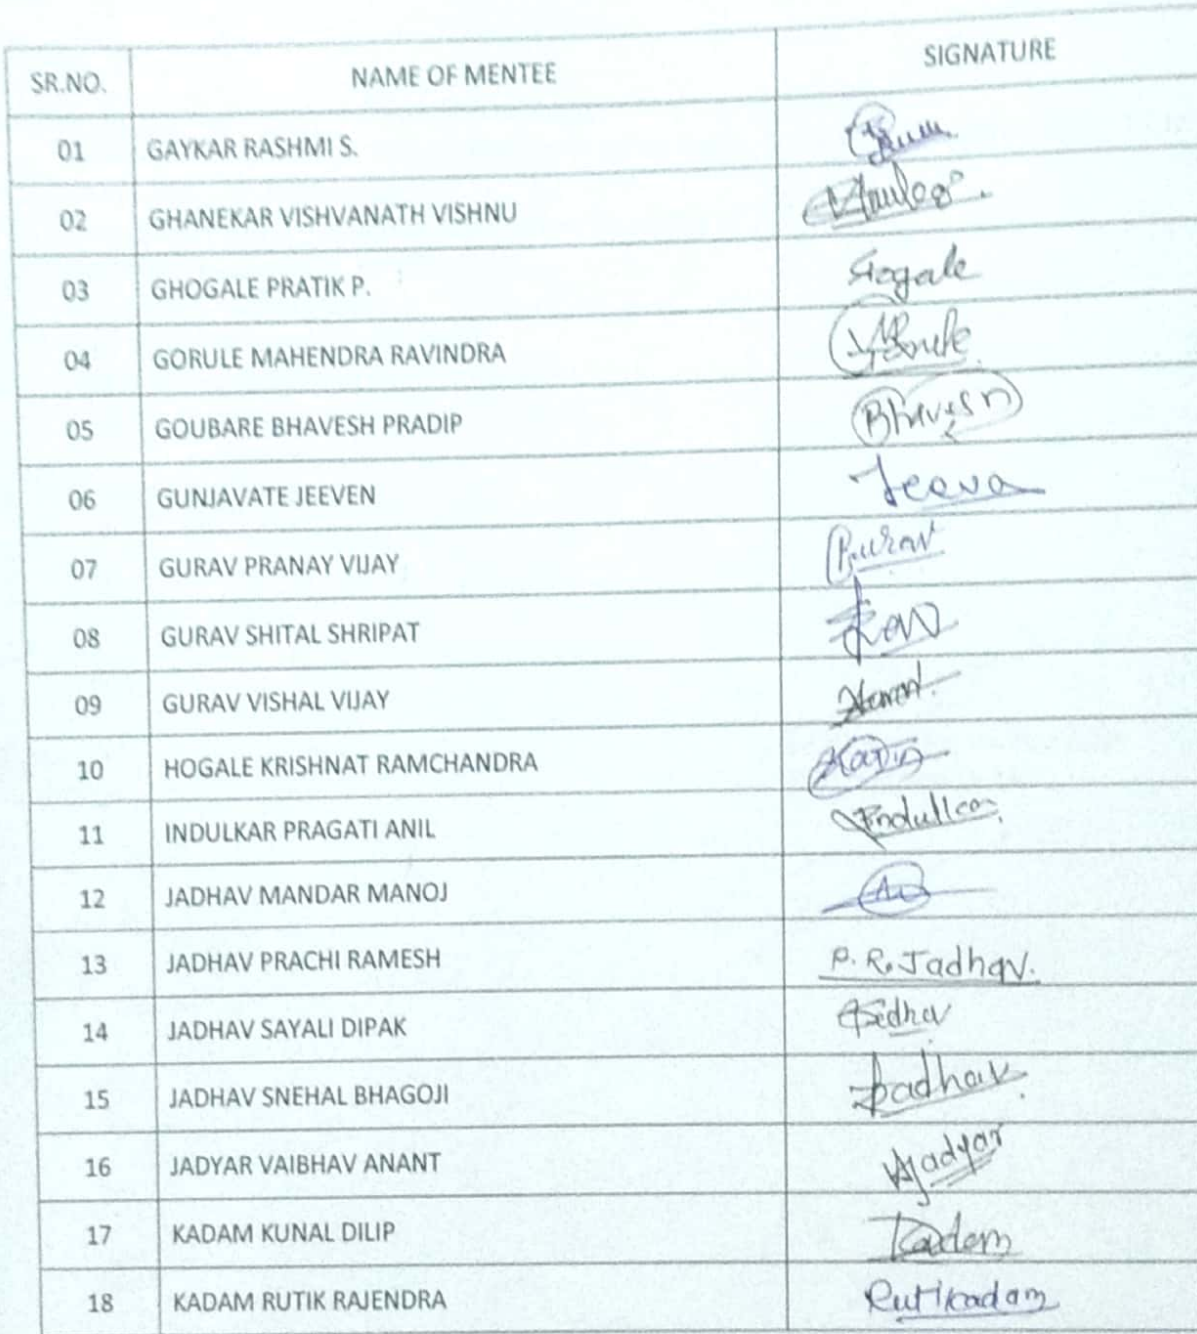 SR.NO. NAME OF MENTEE SIGNATURE
01 GAYKAR RASHMI S.
02 GHANEKAR VISHVANATH VISHNU
03 GHOGALE PRATIK P. Gogale
04 GORULE MAHENDRA RAVINDRA
05 GOUBARE BHAVESH PRADIP Bhavesh
06 GUNJAVATE JEEVEN Jeeva
07 GURAV PRANAY VIJAY Gurav
08 GURAV SHITAL SHRIPAT
09 GURAV VISHAL VIJAY
10 HOGALE KRISHNAT RAMCHANDRA
11 INDULKAR PRAGATI ANIL
12 JADHAV MANDAR MANOJ
13 JADHAV PRACHI RAMESH P. R. Jadhav.
14 JADHAV SAYALI DIPAK
15 JADHAV SNEHAL BHAGOJI Jadhav
16 JADYAR VAIBHAV ANANT VAJadyar
17 KADAM KUNAL DILIP Kadam
18 KADAM RUTIK RAJENDRA Rutikadam